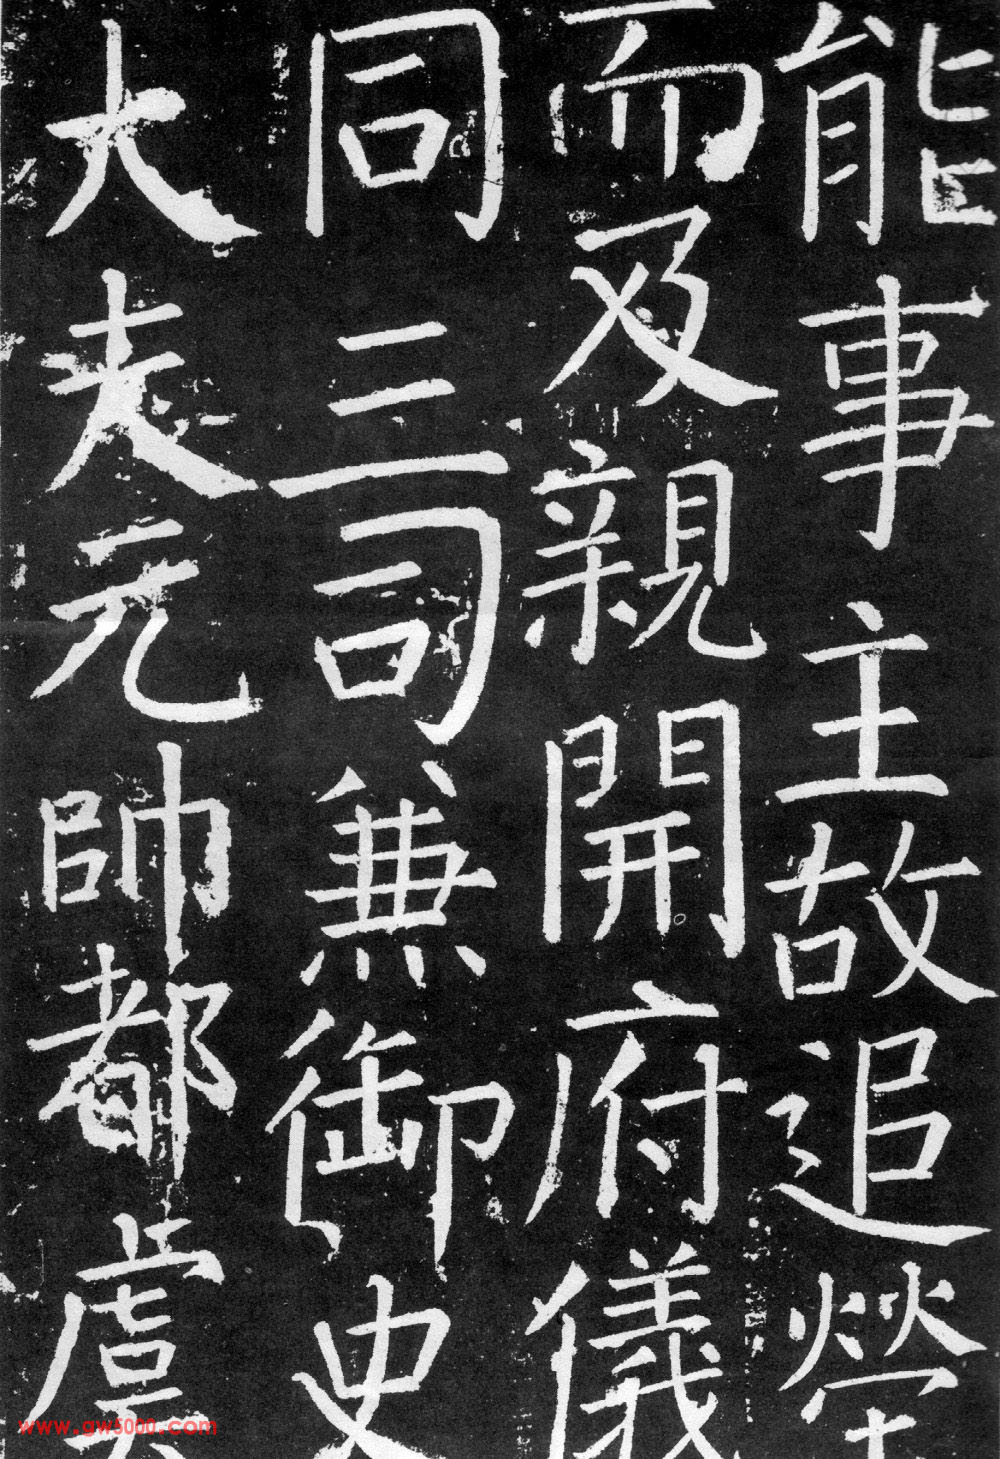 能事主故追榮
而及親開府儀
同三司兼御史
大夫元帥都虞
www.gw5000.com